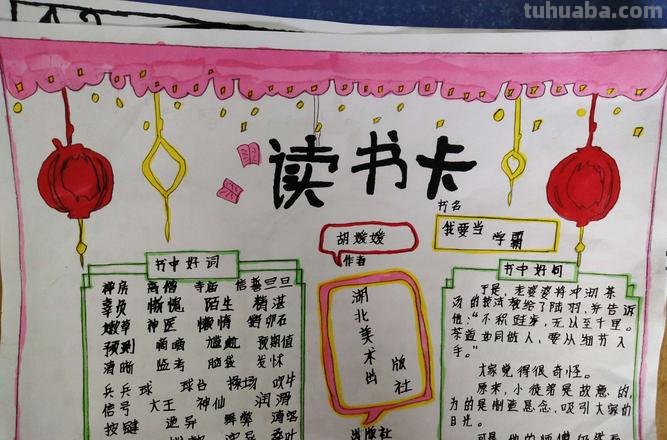 tuhuaba.com
读书卡
书名
我要当学霸
胡媛媛
作者
湖北美术出版社
出版社
书中好词
禅房 高僧 寺庙 信誓旦旦
辜负 惭愧 陌生 精湛
嫩草 神医 懒惰 鹅卵石
预到 嘀嘀 尴尬 预期值
清晰 监考 脑袋 发怵
乒乓球 球台 操场 吹牛
信号 大王 神仙 润滑
按键 诡异 舞弊
书中好句
于是,老婆婆将冲沏茶
汤的技法教给了陆羽,并告诉
他:“不积跬步,无以至千里。
茶道如同做人,要从细节入
手。”
大家觉得很奇怪。
原来,小徒弟是故意的,
为的是制造悬念,吸引大家的
目光。
可是,他的师傅仍